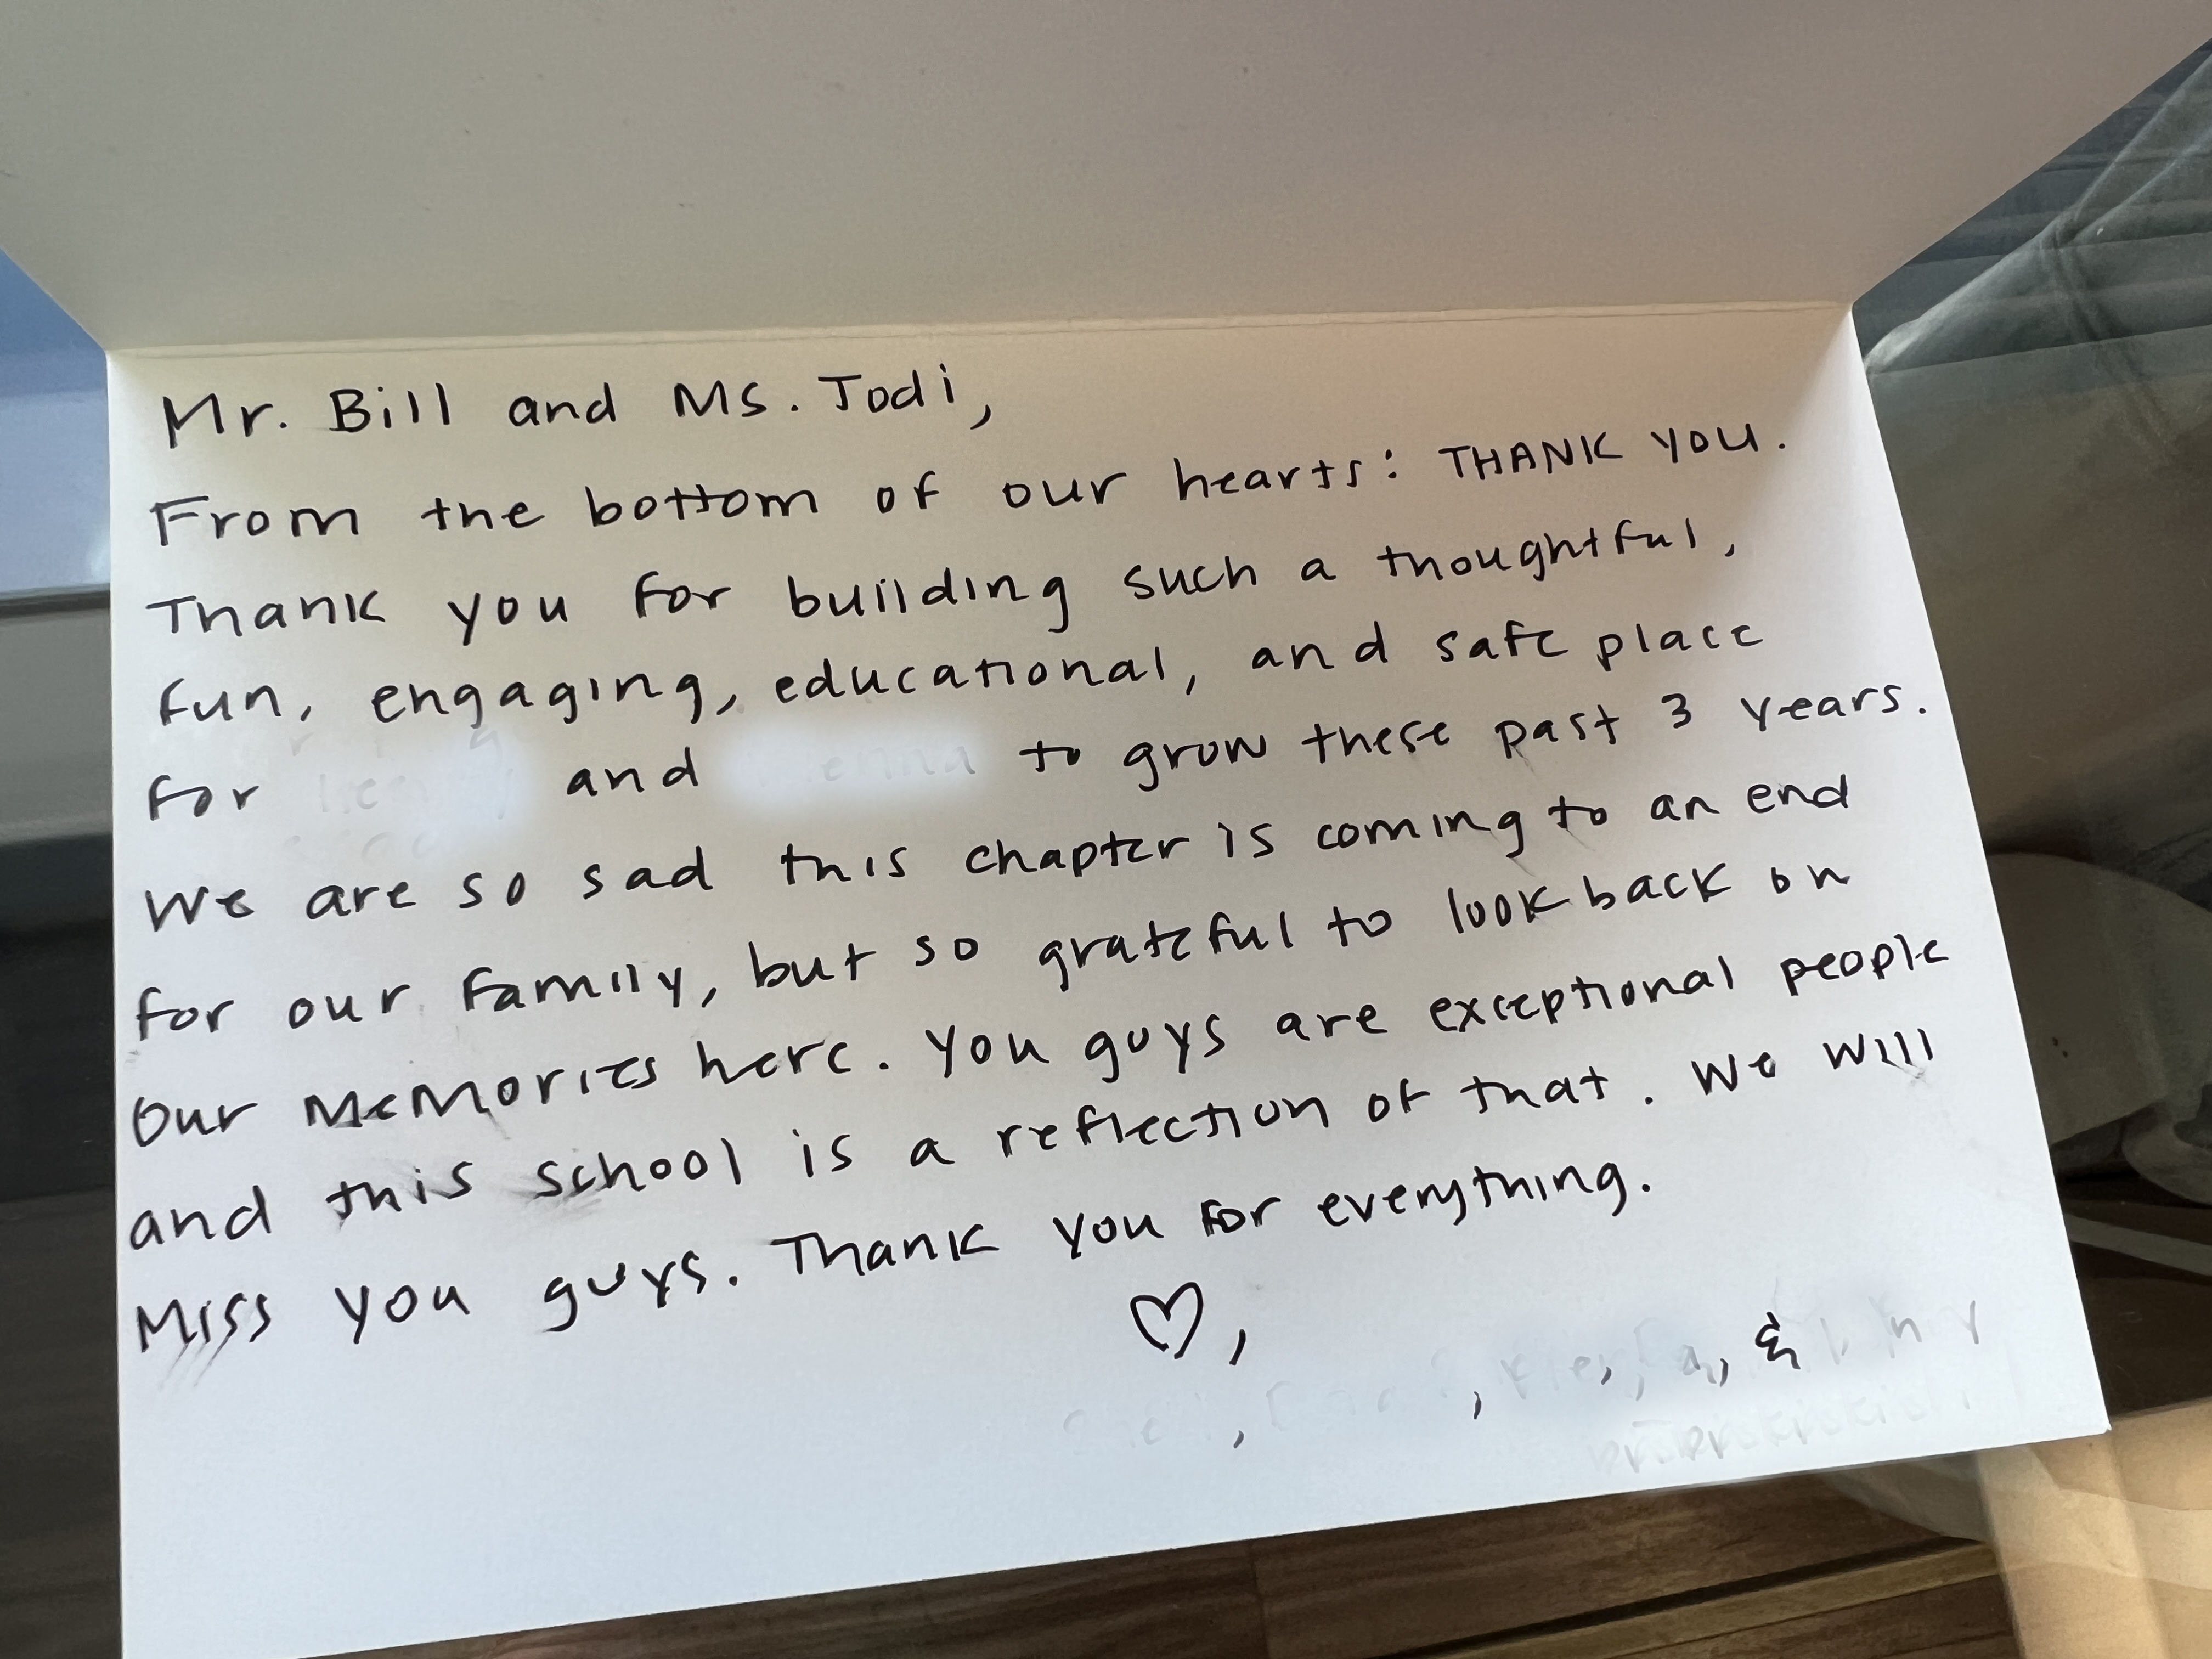 Mr. Bill and Ms. Jodi,
From the bottom of our hearts: THANK YOU.
Thank you for building such a thoughtful,
fun, engaging, educational, and safe place
for and to grow these past 3 years.
We are so sad this chapter is coming to an end
for our family, but so grateful to look back on
our memories here. You guys are exceptional people
and this school is a reflection of that. We will
Miss you guys. Thank you for everything.
♡,
, , , , &